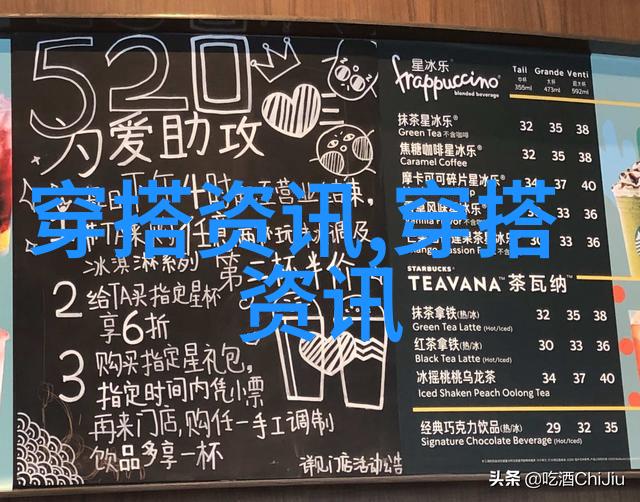 520
为爱助攻
冰淇淋系列 第二杯半价
2 给TA买指定星杯
享6折
3 购买指定星礼包,
指定时间内凭小票
再来门店,购任一手工调制
饮品多享一杯
详见门店活动公告
穿搭资讯,穿搭
资讯
星冰乐®
frappuccino®
blended beverage
Tall Grande Venti
中杯 大杯 超大杯
355ml 473ml 592ml
抹茶星冰乐® 32 35 38
Green Tea 不含咖啡
焦糖咖啡星冰乐® 32 35 38
Caramel Coffee
摩卡可可碎片星冰乐® 34 37 40
风味星冰乐® 33 36
Vanilla Flavor 不含咖啡
30 33 36
STARBUCKS®
TEAVANA™茶瓦纳™
抹茶拿铁(热/冰) 32 35 38
Green Tea Latte (Hot/Iced)
红茶拿铁(热/冰) 30 33 36
Black Tea Latte (Hot/Iced)
冰摇桃桃乌龙茶 34 37 40
Iced Shaken Peach Oolong Tea
经典巧克力饮品(热/冰) 29 32 35
Signature Chocolate Beverage (Hot/Iced)
头条 @吃酒ChiJiu